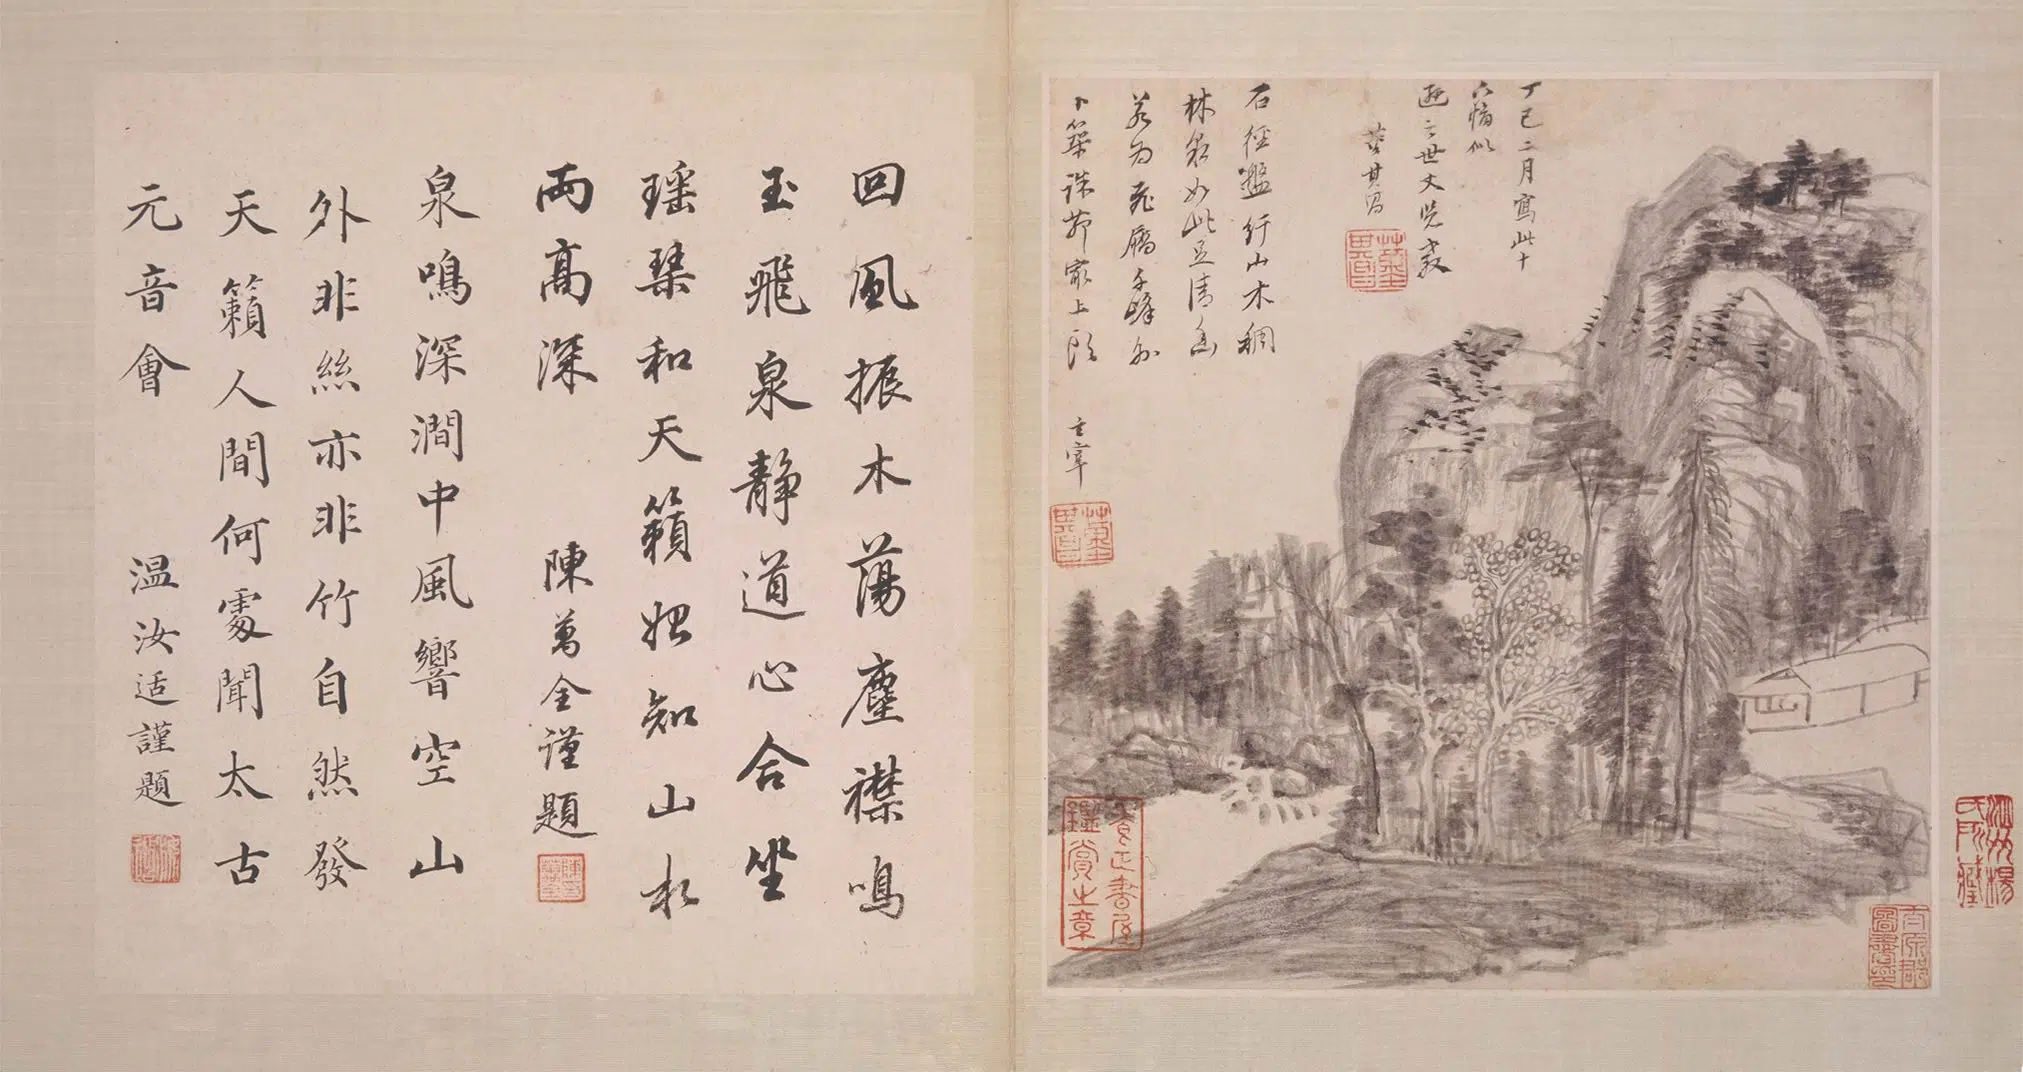 丁巳二月寫此十
六幅似
遜之世丈兄教
董其昌
石徑盤紆山木稠
林泉如此足清幽
若為飛屩千峰外
卜築誅茆最上頭
玄宰
養正書屋
鑑賞之章
回風振木蕩塵襟鳴
玉飛泉靜道心合坐
瑶琴和天籟始知山水
兩高深 陳萬全謹題
泉鳴深澗中風響空山
外非絲亦非竹自然發
天籟人間何處聞太古
元音會 温汝适謹題